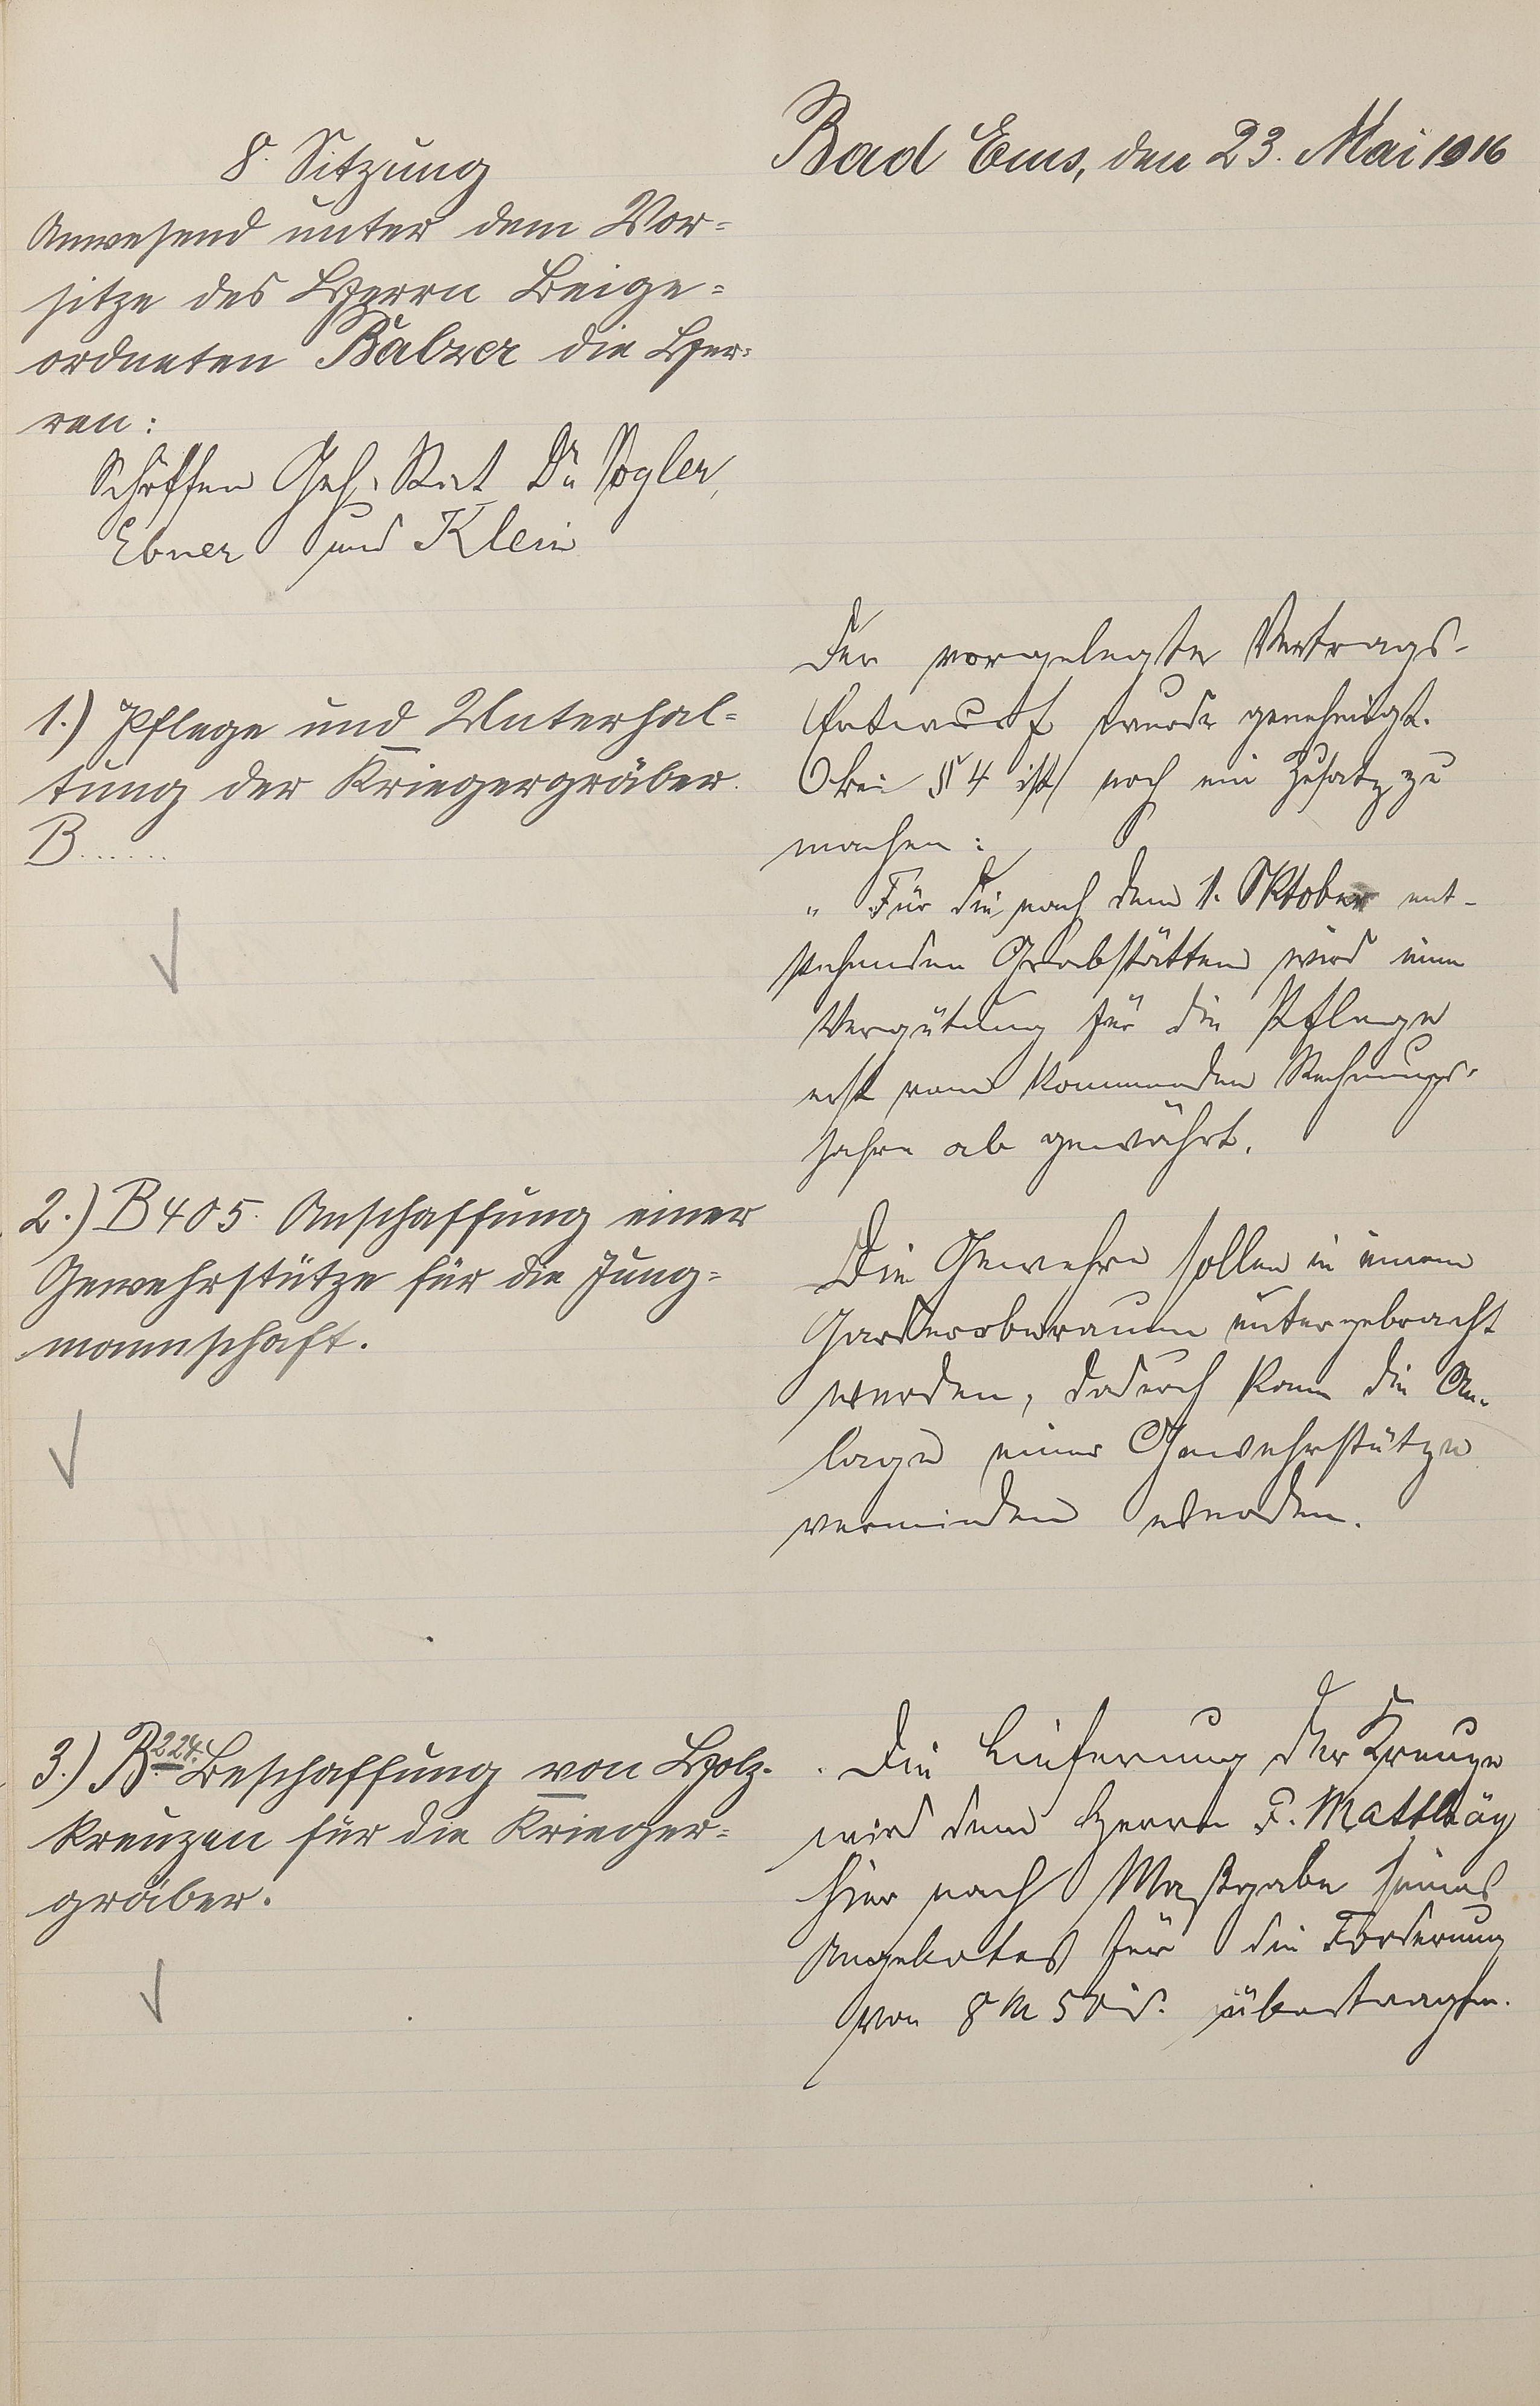 Bad Ems, den 23. Mai 1916
8. Sitzung
Anwesend unter dem Vor=
sitze des Herrn Beige=
ordneten Balzer die Her=
ren:
Schöffen Geh. Rat Dr. Vogler,
Ebner und Klein
1.) Pflege und Unterhal=
tung der Kriegergräber.
B......
Der vorgelegte Vertrags-
Entwurf wurde genehmigt.
Bei § 4 ist noch ein Zusatz zu
machen:
„Für die nach dem 1. Oktober ent-
stehenden Grabstätten wird eine
Vergütung für die Pflege
erst vom kommenden Rechnungs-
jahre ab gewährt.
2.) B 405. Anschaffung einer
Gewehrstütze für die Jung=
mannschaft.
Die Gewehre sollen in einem
Garderoberaum untergebracht
werden, dadurch kann die An-
lage einer Gewehrstütze
vermieden werden.
3.) B. 224. Beschaffung von Holz-
kreuzen für die Krieger=
gräber.
Die Lieferung der Kreuze
wird dem Herrn F. Matthäy
hier nach Maßgabe seines
Angebotes für die Forderung
von 8 M 50 übertragen.